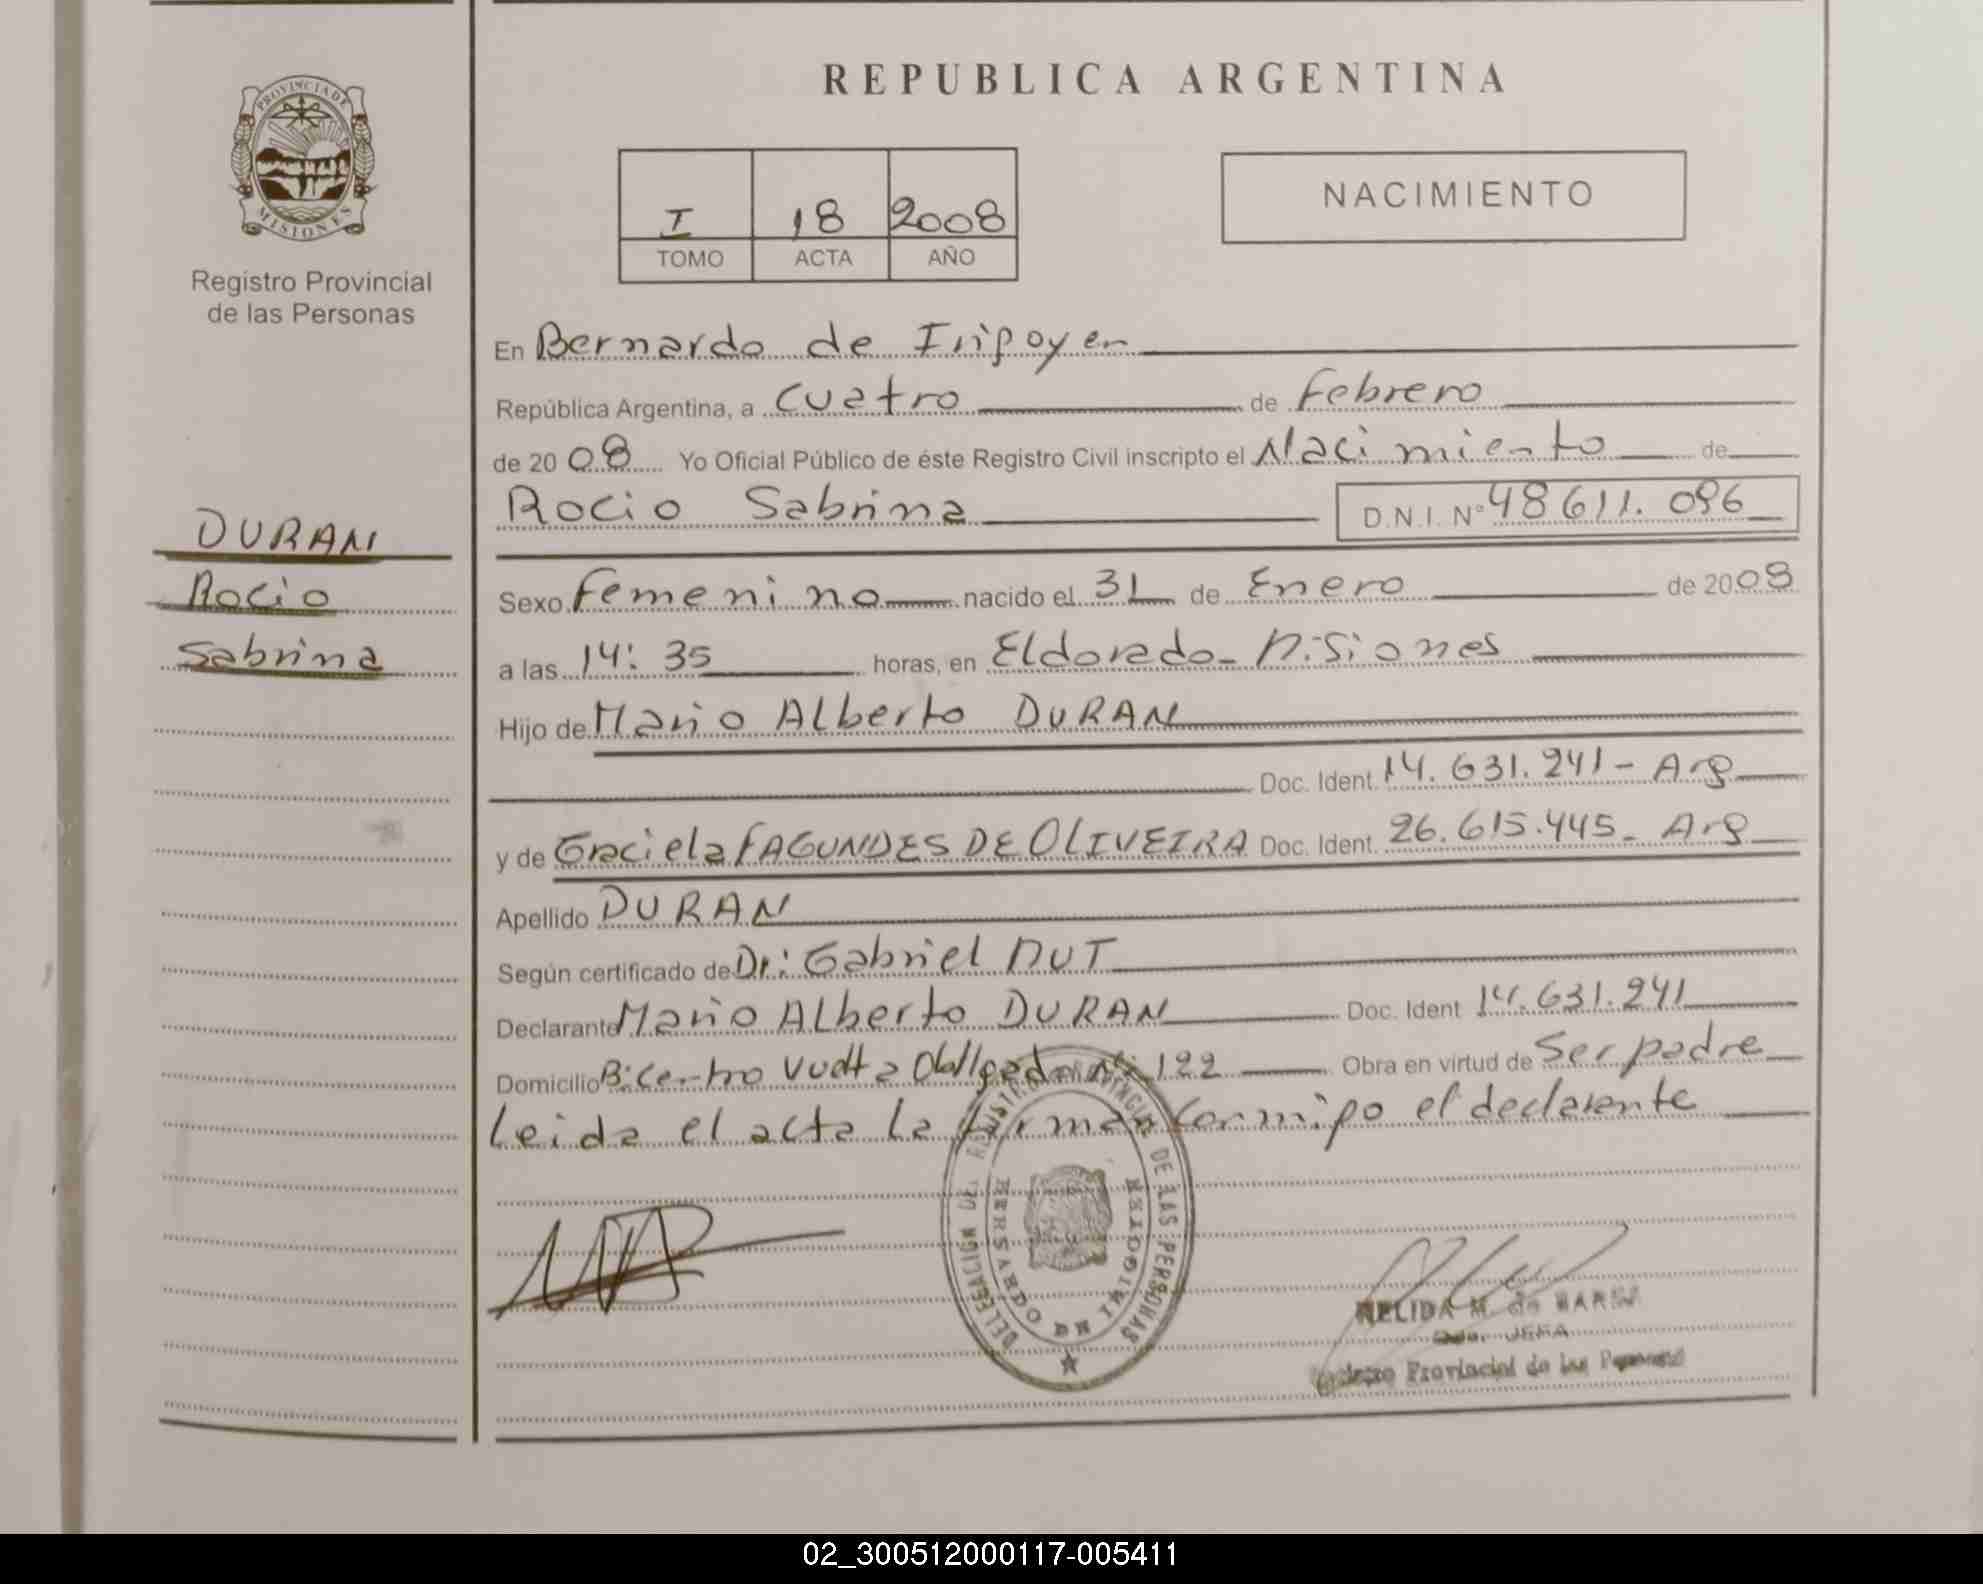 REPUBLICA ARGENTINA
PROVINCIA DE
MISIONES
Registro Provincial
de las Personas
I 18 2008
TOMO ACTA AÑO
NACIMIENTO
En Bernardo de Irigoyen
República Argentina, a cuatro de Febrero
de 2008 Yo Oficial Público de éste Registro Civil inscripto el Nacimiento de
Rocio Sabrina D.N.I. Nº 48611.096
DURAN
Rocio
Sabrina
Sexo Femenino nacido el 31 de Enero de 2008
a las 14:35 horas, en Eldorado - Misiones
Hijo de Mario Alberto DURAN
Doc. Ident. 14.631.241 - Arg
y de Graciela FAGUNDES DE OLIVEIRA Doc. Ident. 26.615.445 - Arg
Apellido DURAN
Según certificado de Dr: Gabriel
Declarante Mario Alberto DURAN Doc. Ident 14.631.241
Domicilio Bº Centro Vuelta Obligado Nº 122 Obra en virtud de Ser padre
Leida el acta la firman conmigo el declarante
DELEGACION DEL REGISTRO PROVINCIAL DE LAS PERSONAS
BERNARDO DE IRIGOYEN
NELIDA M. de
JEFA
Registro Provincial de las Personas
02_300512000117-005411